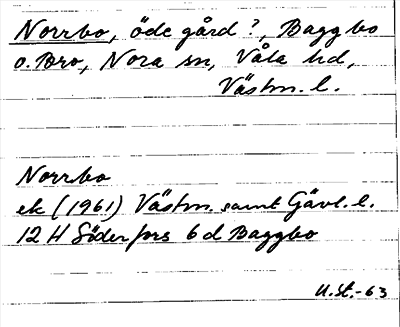 Norrbo, öde gård?, Baggbo
o. Bro, Nora sn, Våla hd,
Västm. l.
Norrbo
ek (1961) Västm. samt Gävl. l.
12 H Söderfors 6 d Baggbo
U.St.-63